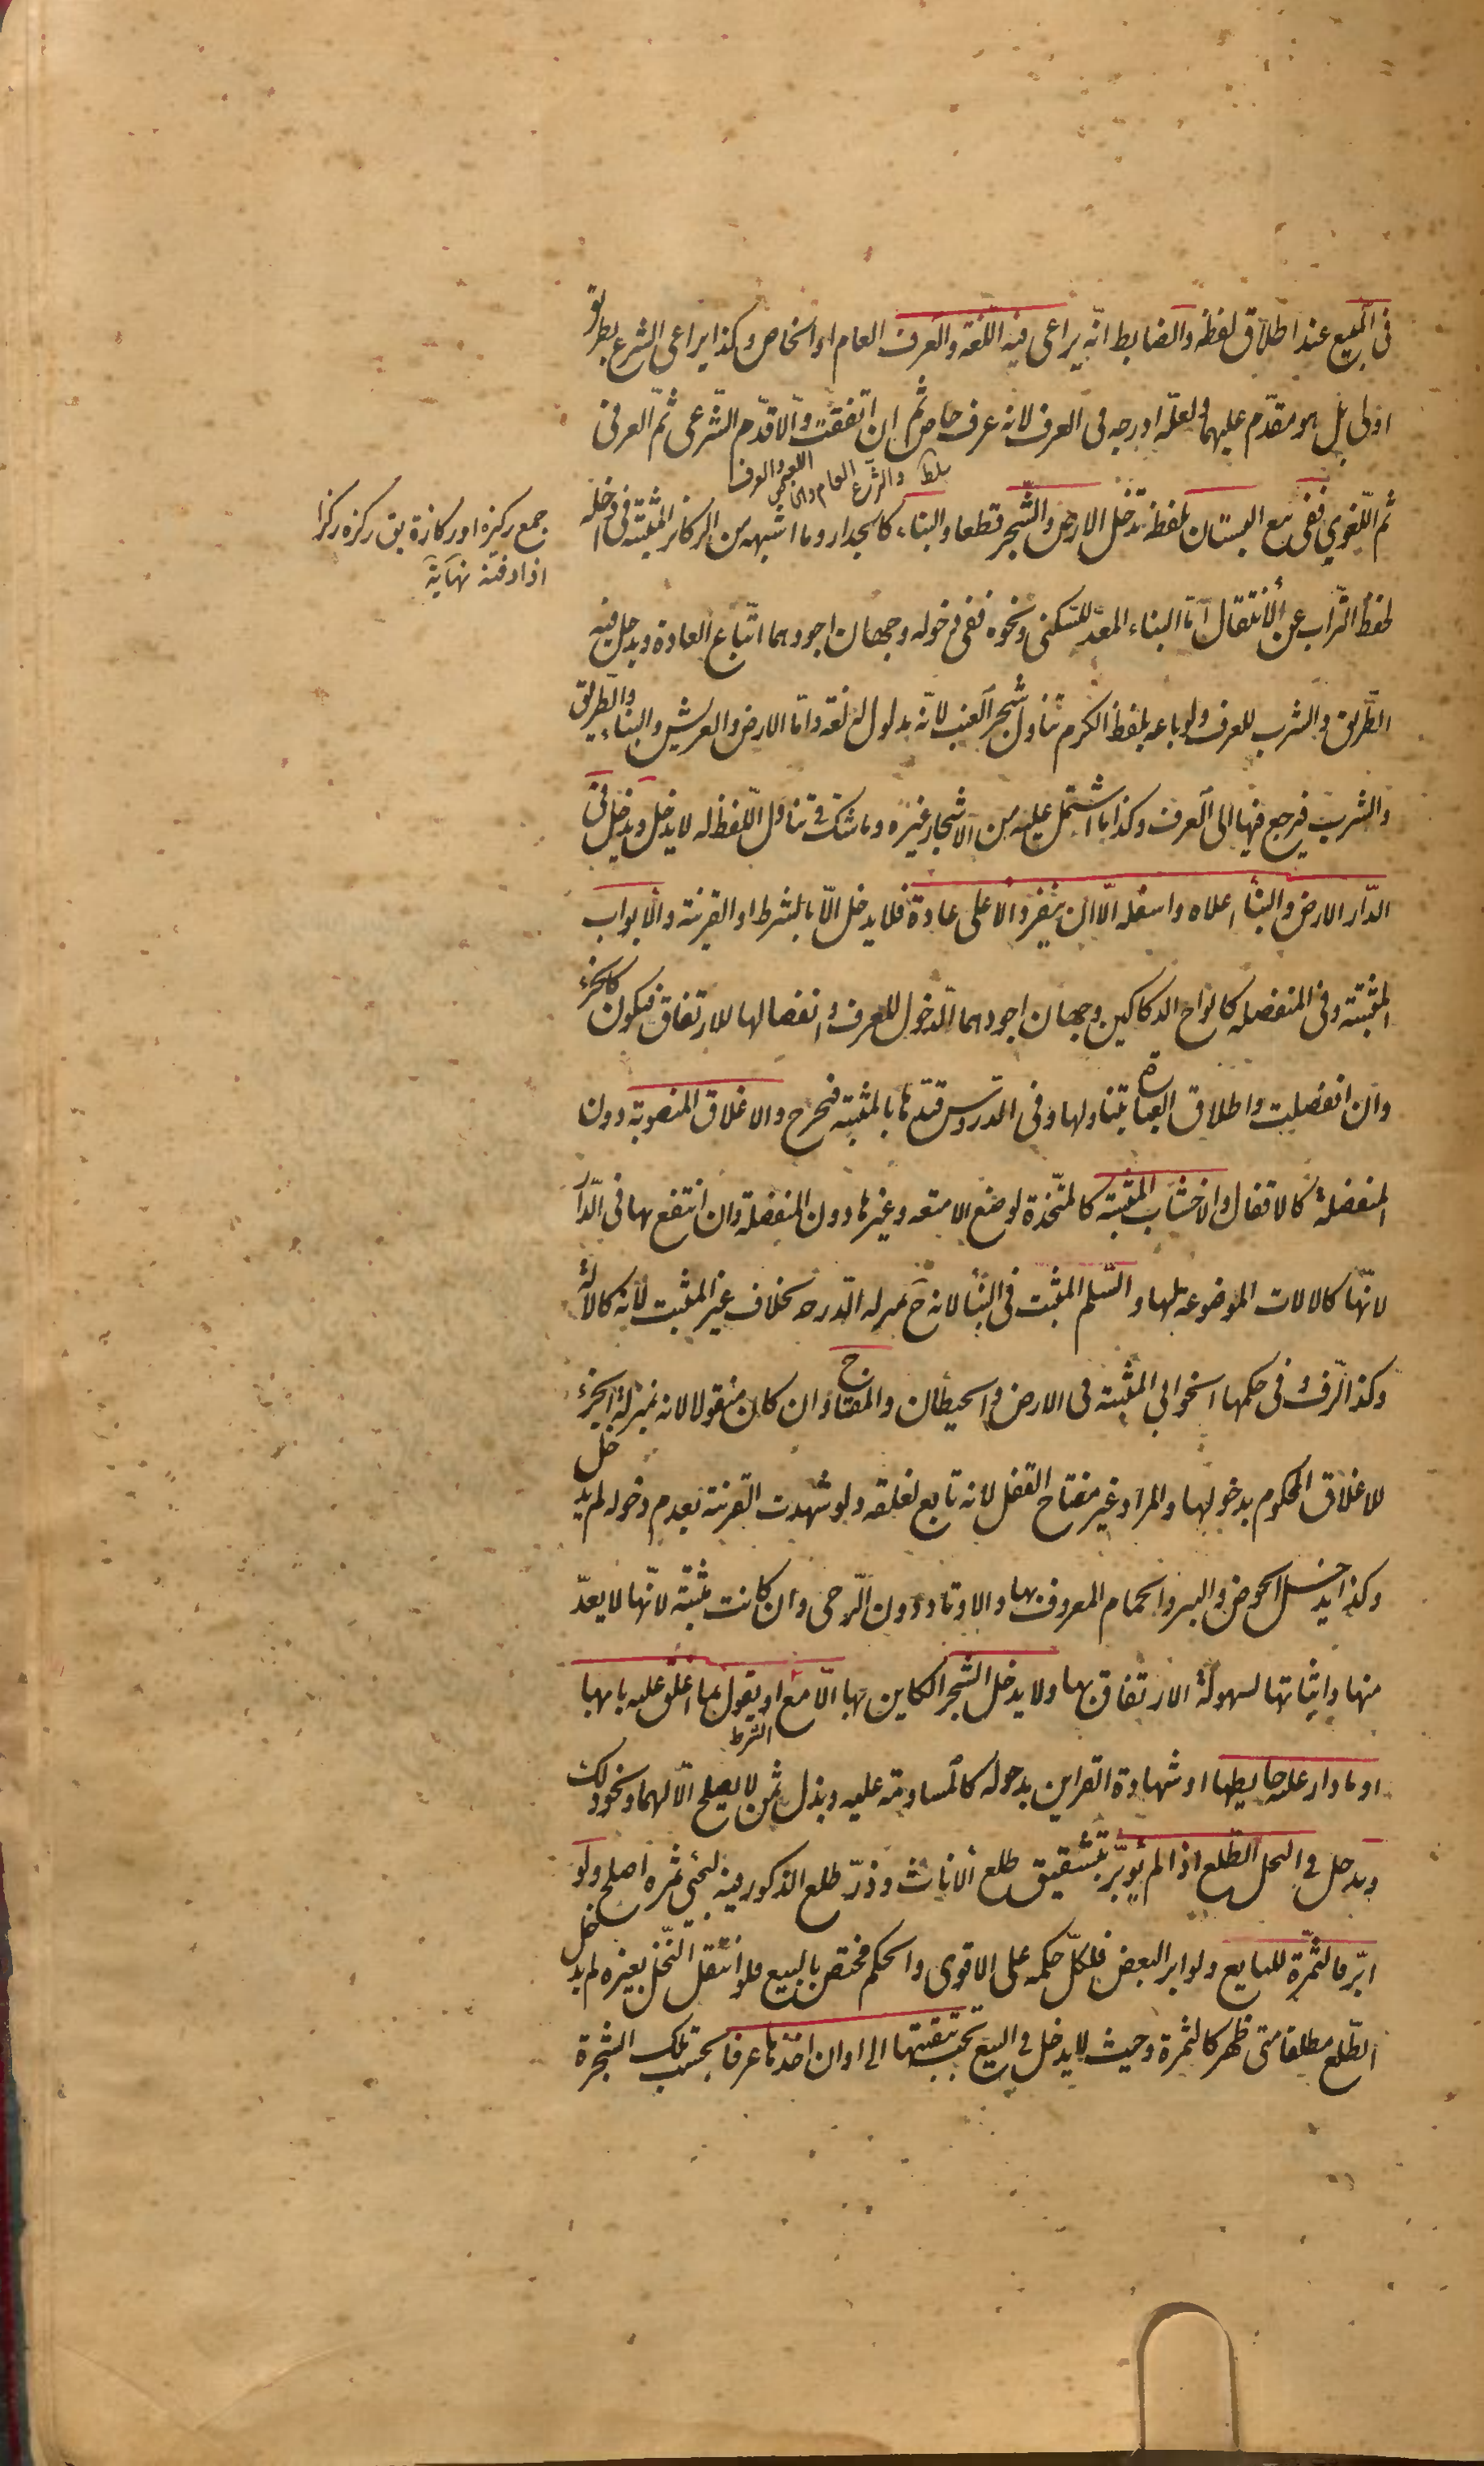 فى المبيع عند اطلاق لفظه والضابط انّه يراعى فيه اللّغة والعرف العام او الخاص وكذا يراعى الشرع بطريق
اولى بل هو مقدّم عليهما ولعلّه ادرجه فى العرف لانه عرف خاص ثم ان اتّفقت والّا قدّم الشّرعى ثمّ العرفى
والشرع العام والخاص اللغة والعرف
ثم اللّغوي ففى بيع البستان بلفظه تدخل الارض والشّجر قطعا والبناء كالجدار وما اشبهه من الركائز المثبتة فى داخله
جمع ركيزة او ركازة يق ركزه ركزا
اذا دفنه نهاية
لحفظ التّراب عن الانتقال امّا البناء المعدّ للسّكنى ونحوه ففى دخوله وجهان اجودهما اتّباع العادة ويدخل فيه
الطّريق والشرب للعرف ولو باعه بلفظ الكرم تناول شجر العنب لانّه مدلوله لغة وامّا الارض والعريش والبناء والطّريق
والشرب فيرجع فيها الى العرف وكذا ما اشتمل عليه من الاشجار غيره وما شك فى تناول اللّفظ له لا يدخل ويدخل فى
الدّار الارض والبناء اعلاه واسفله الّا ان ينفرد الاعلى عادة فلا يدخل الّا بالشرط او القرينة والابواب
المثبتة وفى المنفصله كالواح الدكاكين وجهان اجودهما الدّخول للعرف وانفصالها للارتفاق فيكون كالجزء
وان انفصلت واطلاق العبارة يتناولها وفى الدروس قيّدها بالمثبتة فيخرج والاغلاق المنصوبة دون
المنفصلة كالاقفال والاخشاب المثبتة كالمتّخذة لوضع الامتعه وغيرها دون المنفصلة وان انتفع بها فى الدّار
لانّها كالالات الموضوعة بها والسّلم المثبت فى البناء لانه ح بمنزلة الدّرجه بخلاف غير المثبت لانّه كالالة
وكذا الرّف وفى حكمها الخوابي المثبتة فى الارض والحيطان والمفتاح وان كان منقولا لانه بمنزلة الجزء
للاغلاق المحكوم بدخولها والمراد غير مفتاح القفل لانه تابع لغلقه ولو شهدت القرينة بعدم دخوله لم يدخل
وكذا يدخل الحوض والبئر والحمام المعروف بها والاوتاد دون الرّحى وان كانت مثبتة لانّها لا يعدّ
منها واثباتها لسهولة الارتفاق بها ولا يدخل الشجر الكاين بها الّا مع الشرط او يقول بما اغلق عليه بابها
او ما دار عليه حايطها او شهادة القراين بدخوله كالمساومة عليه وبذل ثمن لا يصلح الّا لهما ونحو ذلك
ويدخل فى النخل الطّلع اذا لم يؤبّر بتشقيق طلع الاناث وذرّ طلع الذكور فيه ليجئ ثمره اصلح ولو
ابّر فالثمّرة للبايع ولو ابر البعض فلكلّ حكمه على الاقوى والحكم مختص بالبيع فلو انتقل النّخل بغيره لم يدخل
الطّلع مطلقا متى ظهر كالثمرة وحيث لا يدخل فى البيع تجب تبقيتها الى اوان اخذها عرفا بحسب تلك الشجرة